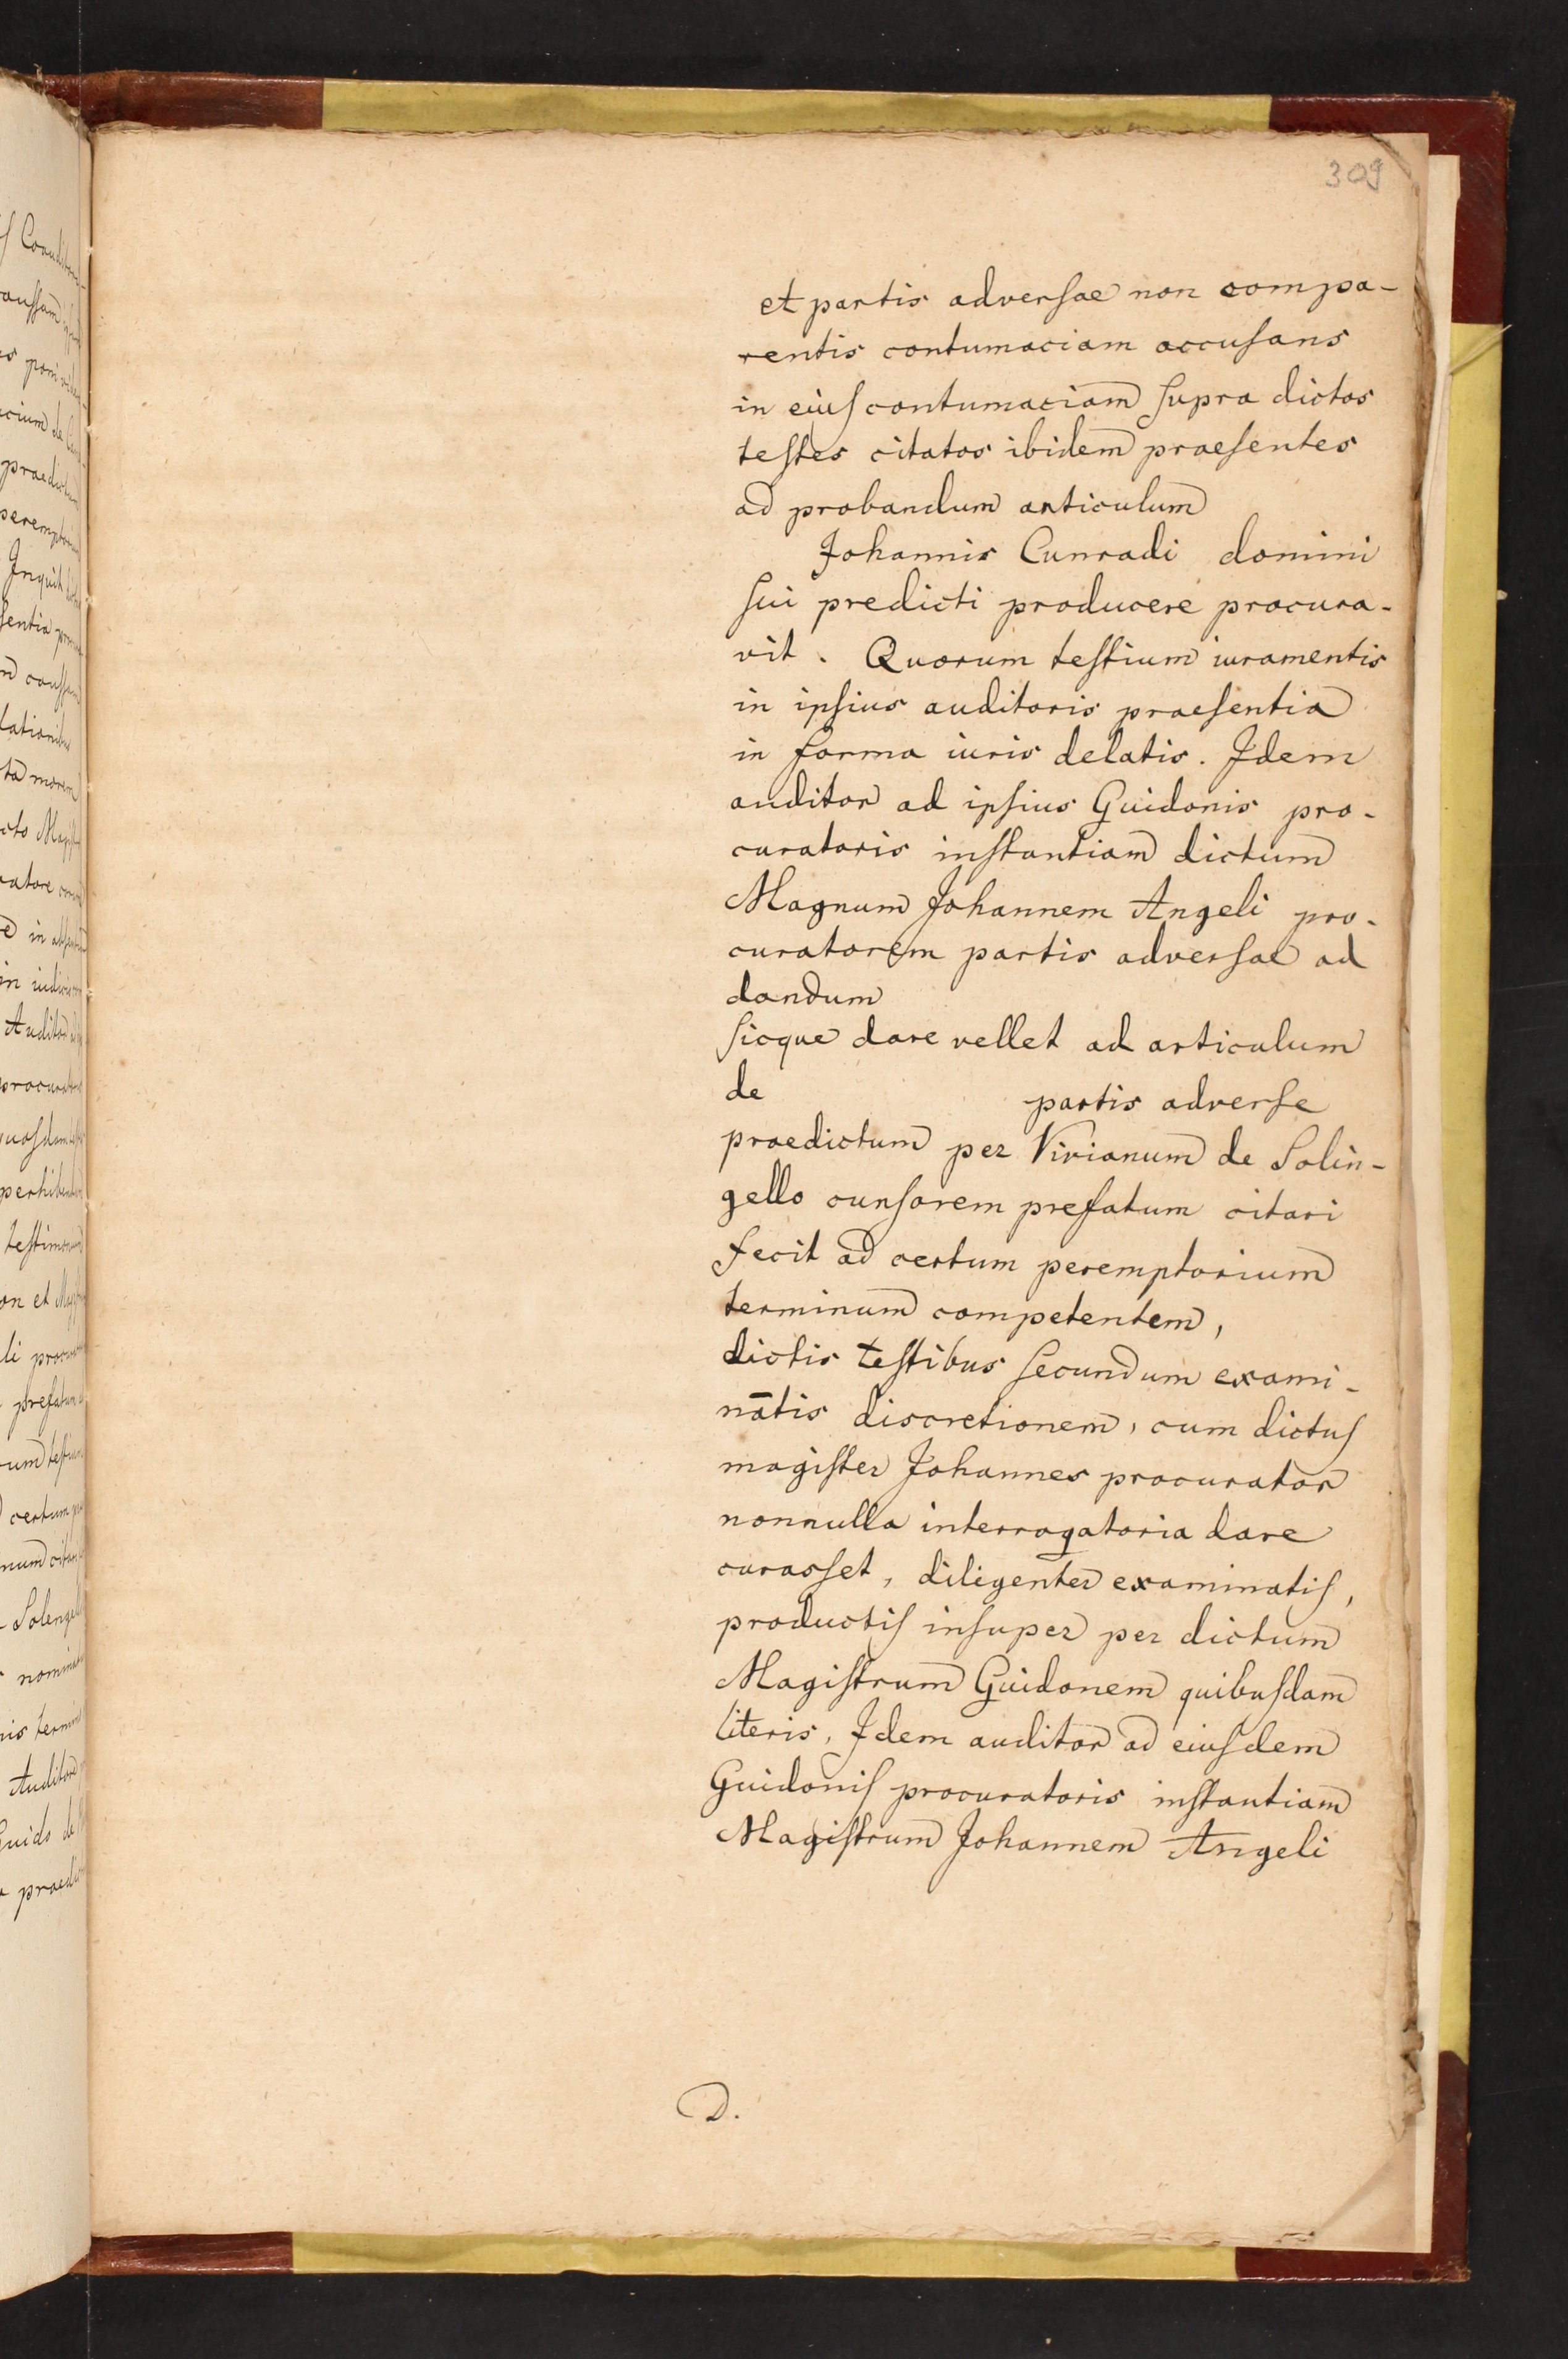 309
et partis adversae non compa-
rentis contumaciam accusans
in eius contumaciam supra dictos
testes citatos ibidem praesentes
ad probandum articulum
Johannis Cunradi domini
sui predicti producere procura-
vit. Quorum testium iuramentis
in ipsius auditoris praesentia
in forma iuris delatis. Idem
auditor ad ipsius Guidonis pro-
curatoris instantiam dictum
Magnum Johannem Angeli pro-
curatorem partis adversae ad
dandum
sicque dare vellet ad articulum
de partis adverse
praedictum per Vivianum de Solin-
gello cunsorem prefatum citari
fecit ad certum peremptorium
terminum competentem,
dictis testibus secundum exami-
natis discretionem, cum dictus
magister Johannes procurator
nonnulla interrogatoria dare
curasset, diligenter examinatis,
productis insuper per dictum
Magistrum Guidonem quibusdam
literis, Idem auditor ad eiusdem
Guidonis procuratoris instantiam
Magistrum Johannem Angeli
D.